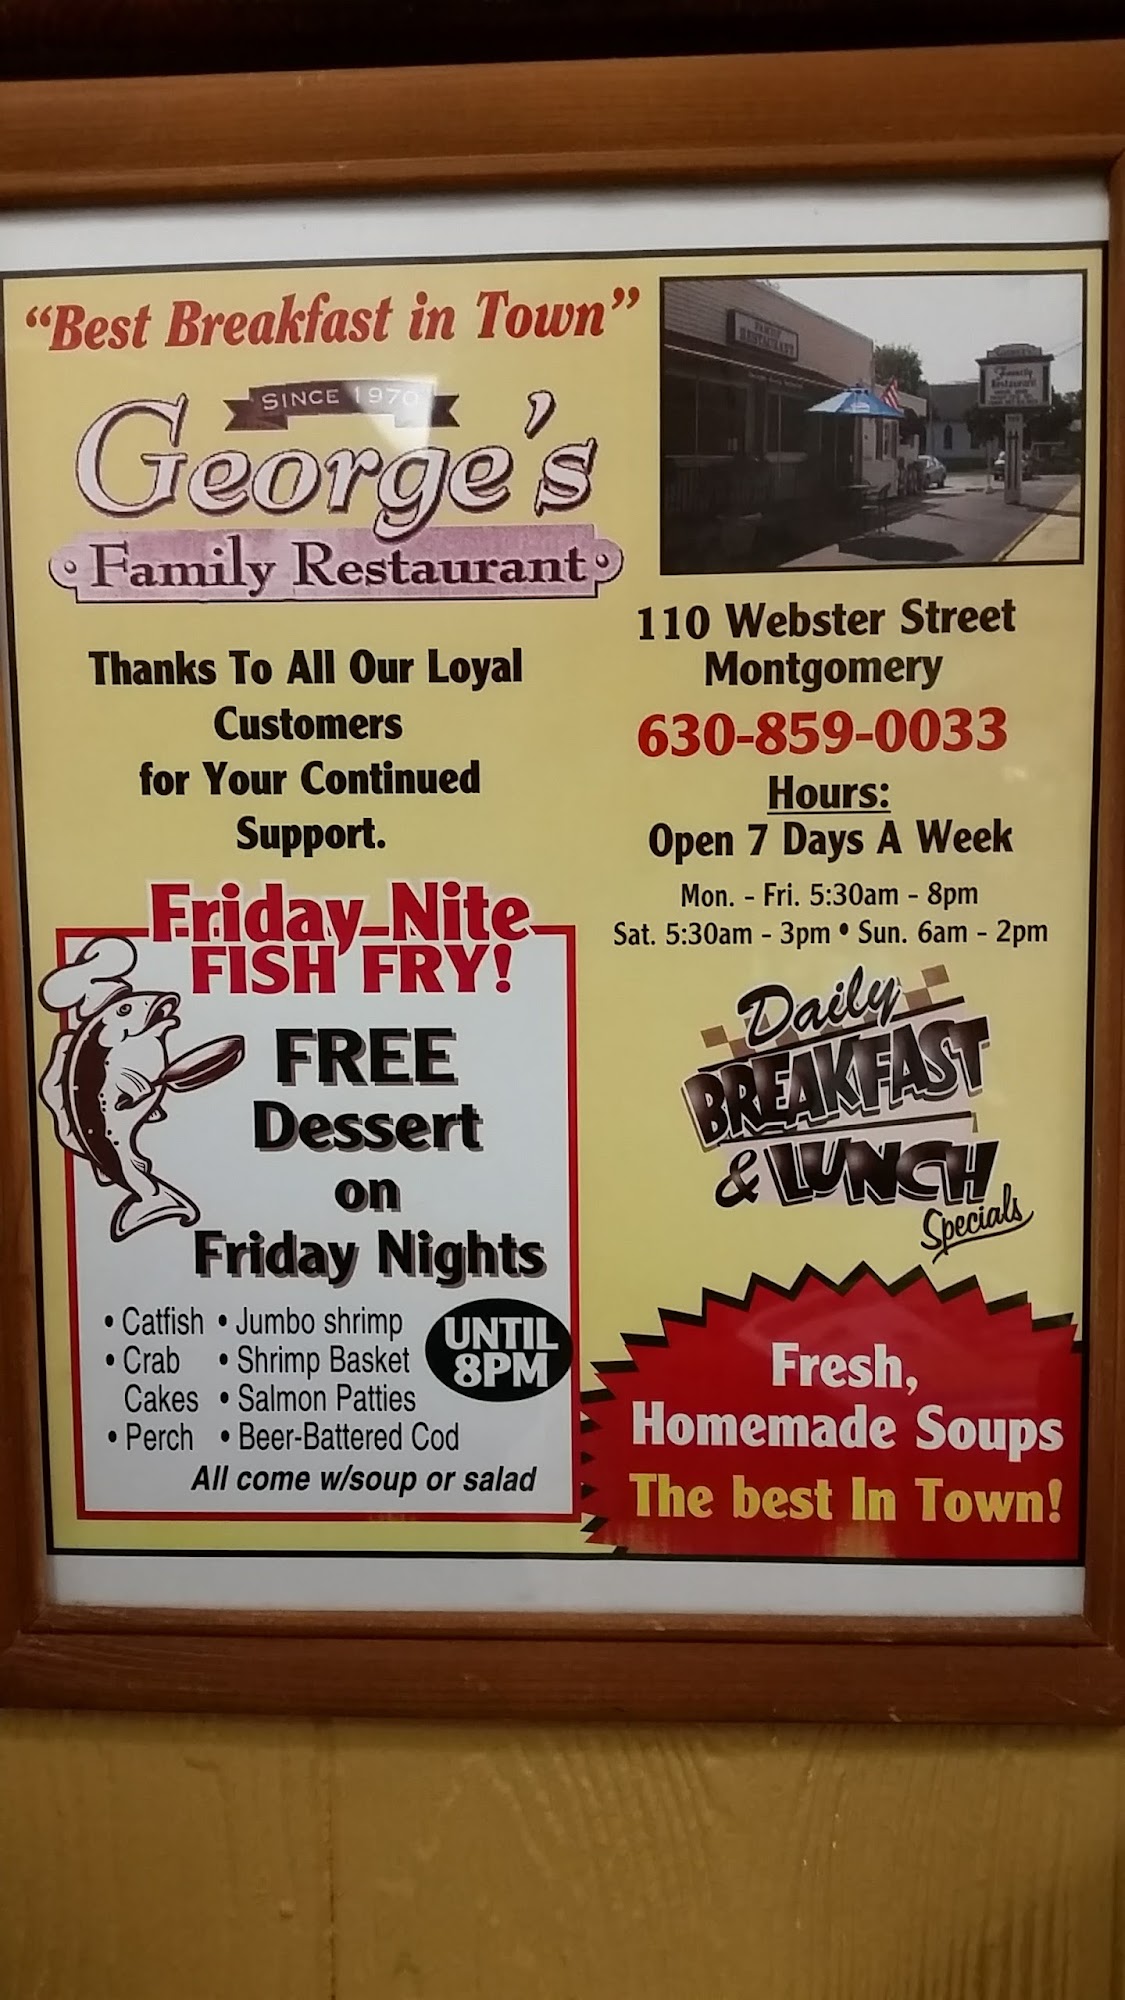 “Best Breakfast in Town”
SINCE 1970
George's
Family Restaurant
Thanks To All Our Loyal
Customers
for Your Continued
Support.
Friday Nite
FISH FRY!
FREE
Dessert
on
Friday Nights
• Catfish
• Crab
Cakes
• Perch
• Jumbo shrimp
• Shrimp Basket
• Salmon Patties
• Beer-Battered Cod
UNTIL
8PM
All come w/soup or salad
FAMILY
RESTAURANT
Family
Restaurant
110 Webster Street
Montgomery
630-859-0033
Hours:
Open 7 Days A Week
Mon. - Fri. 5:30am - 8pm
Sat. 5:30am - 3pm • Sun. 6am - 2pm
Daily
BREAKFAST
& LUNCH
Specials
Fresh,
Homemade Soups
The best In Town!